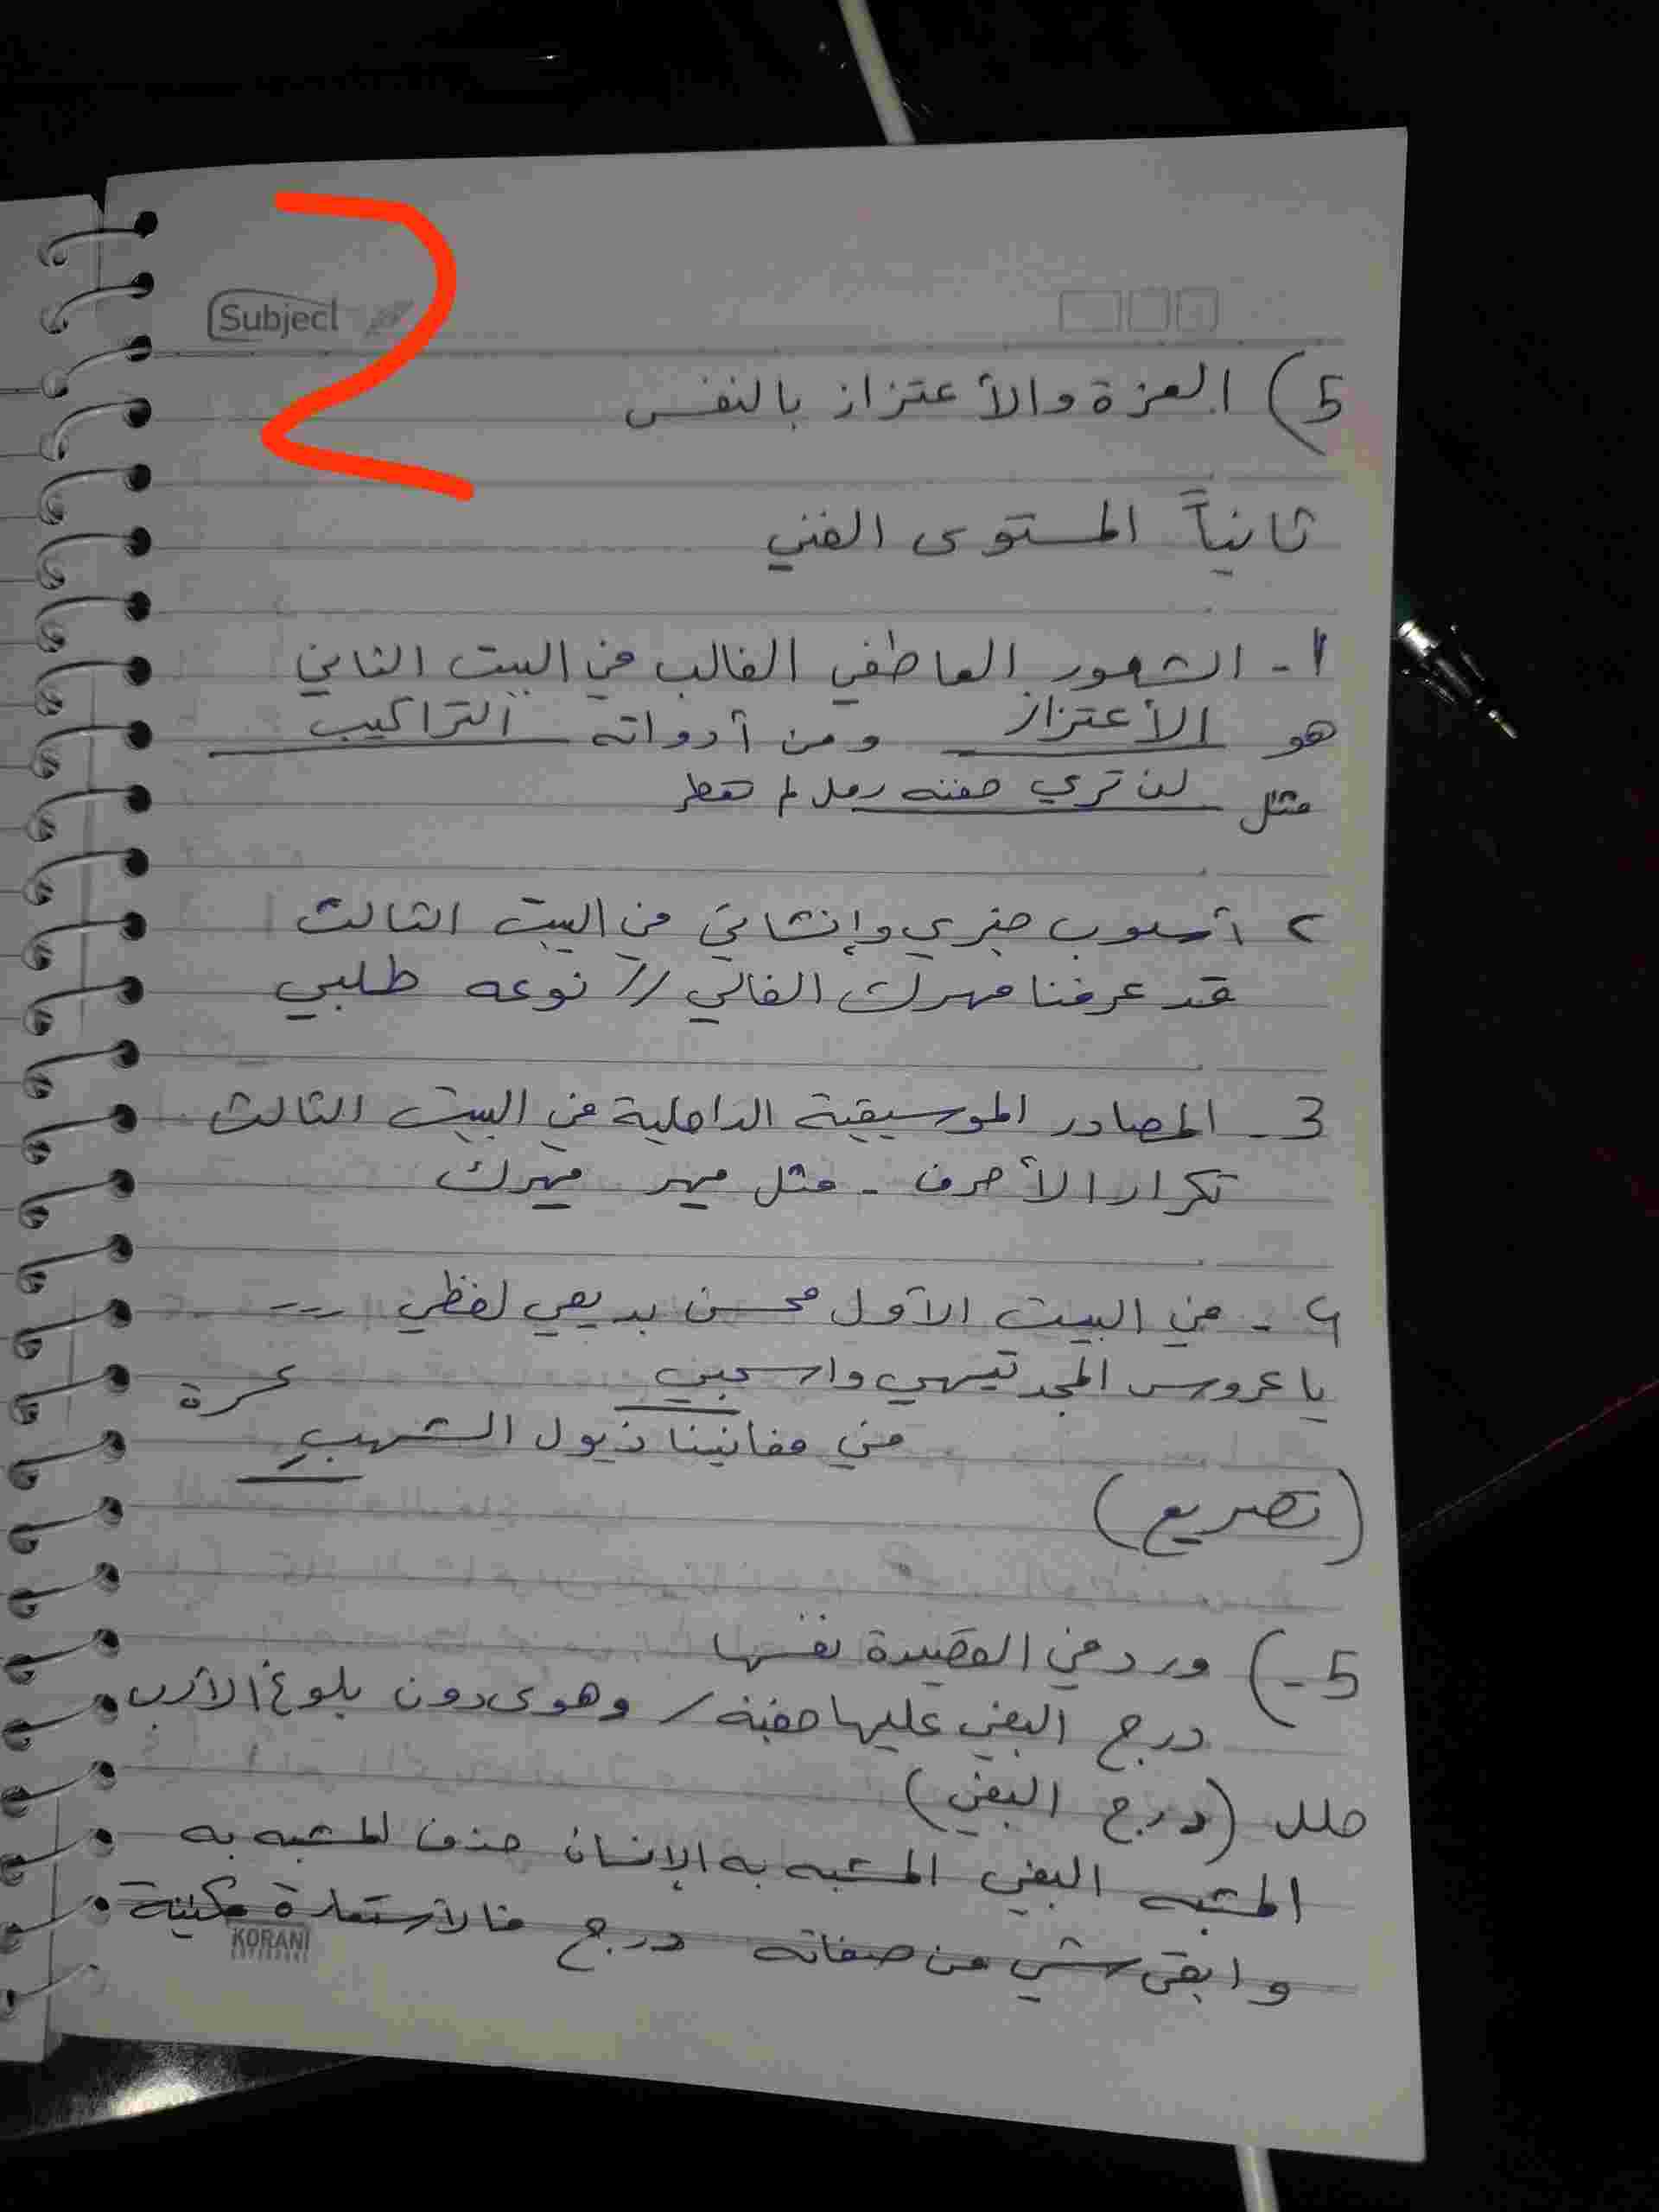 2
Subject
5) العزة والأعتزاز بالنفس
ثانياً المستوى الفني
1- الشعور العاطفي الغالب في البيت الثاني
هو الأعتزاز ومن أدواته التراكيب
مثل لن تري حفنه رمل لم تعطر
٢ أسلوب خبري وإنشائي في البيت الثالث
قد عرفنا مهرك الغالي // نوعه طلبي
3- المصادر الموسيقية الداخلية في البيت الثالث
تكرار الأحرف - مثل مهر مهرك
٤- في البيت الأول محسن بديعي لفظي ---
يا عروس المجد تيهي واسحبي
في مغانينا ذيول الشهب
(تصريع)
5-) ورد في القصيدة نفسها
درج البغي عليها حقبة / وهوى دون بلوغ الأرب
حلل (درج البغي)
المشبه البغي المشبه به الإنسان حذف المشبه به
وابقى شي من صفاته درج فالأستعارة مكنية
KORANI